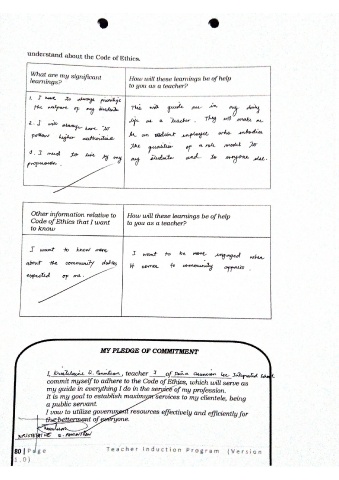 understand about the Code of Ethics.
What are my significant learnings?
How will these learnings be of help to you as a teacher?
1. I have to always prioritize
the welfare of my students
2. I will always have to
follow higher authorities
3. I need to live by my
This will guide me in my daily
life as a teacher. They will make me
be an obedient employee who embodies
the qualities of a role model to
my students and to everyone else.
Other information relative to
Code of Ethics that I want
to know
How will these learnings be of help
to you as a teacher?
I want to know more
about the community duties
expected of me.
I want to be more engaged when
it comes to community
MY PLEDGE OF COMMITMENT
I, teacher 3 of Integrated School
commit myself to adhere to the Code of Ethics, which will serve as
my guide in everything I do in the service of my profession.
It is my goal to establish maximum services to my clientele, being
a public servant.
I vow to utilize government resources effectively and efficiently for
the betterment of everyone.
80 | Page Teacher Induction Program (Version
1.0)